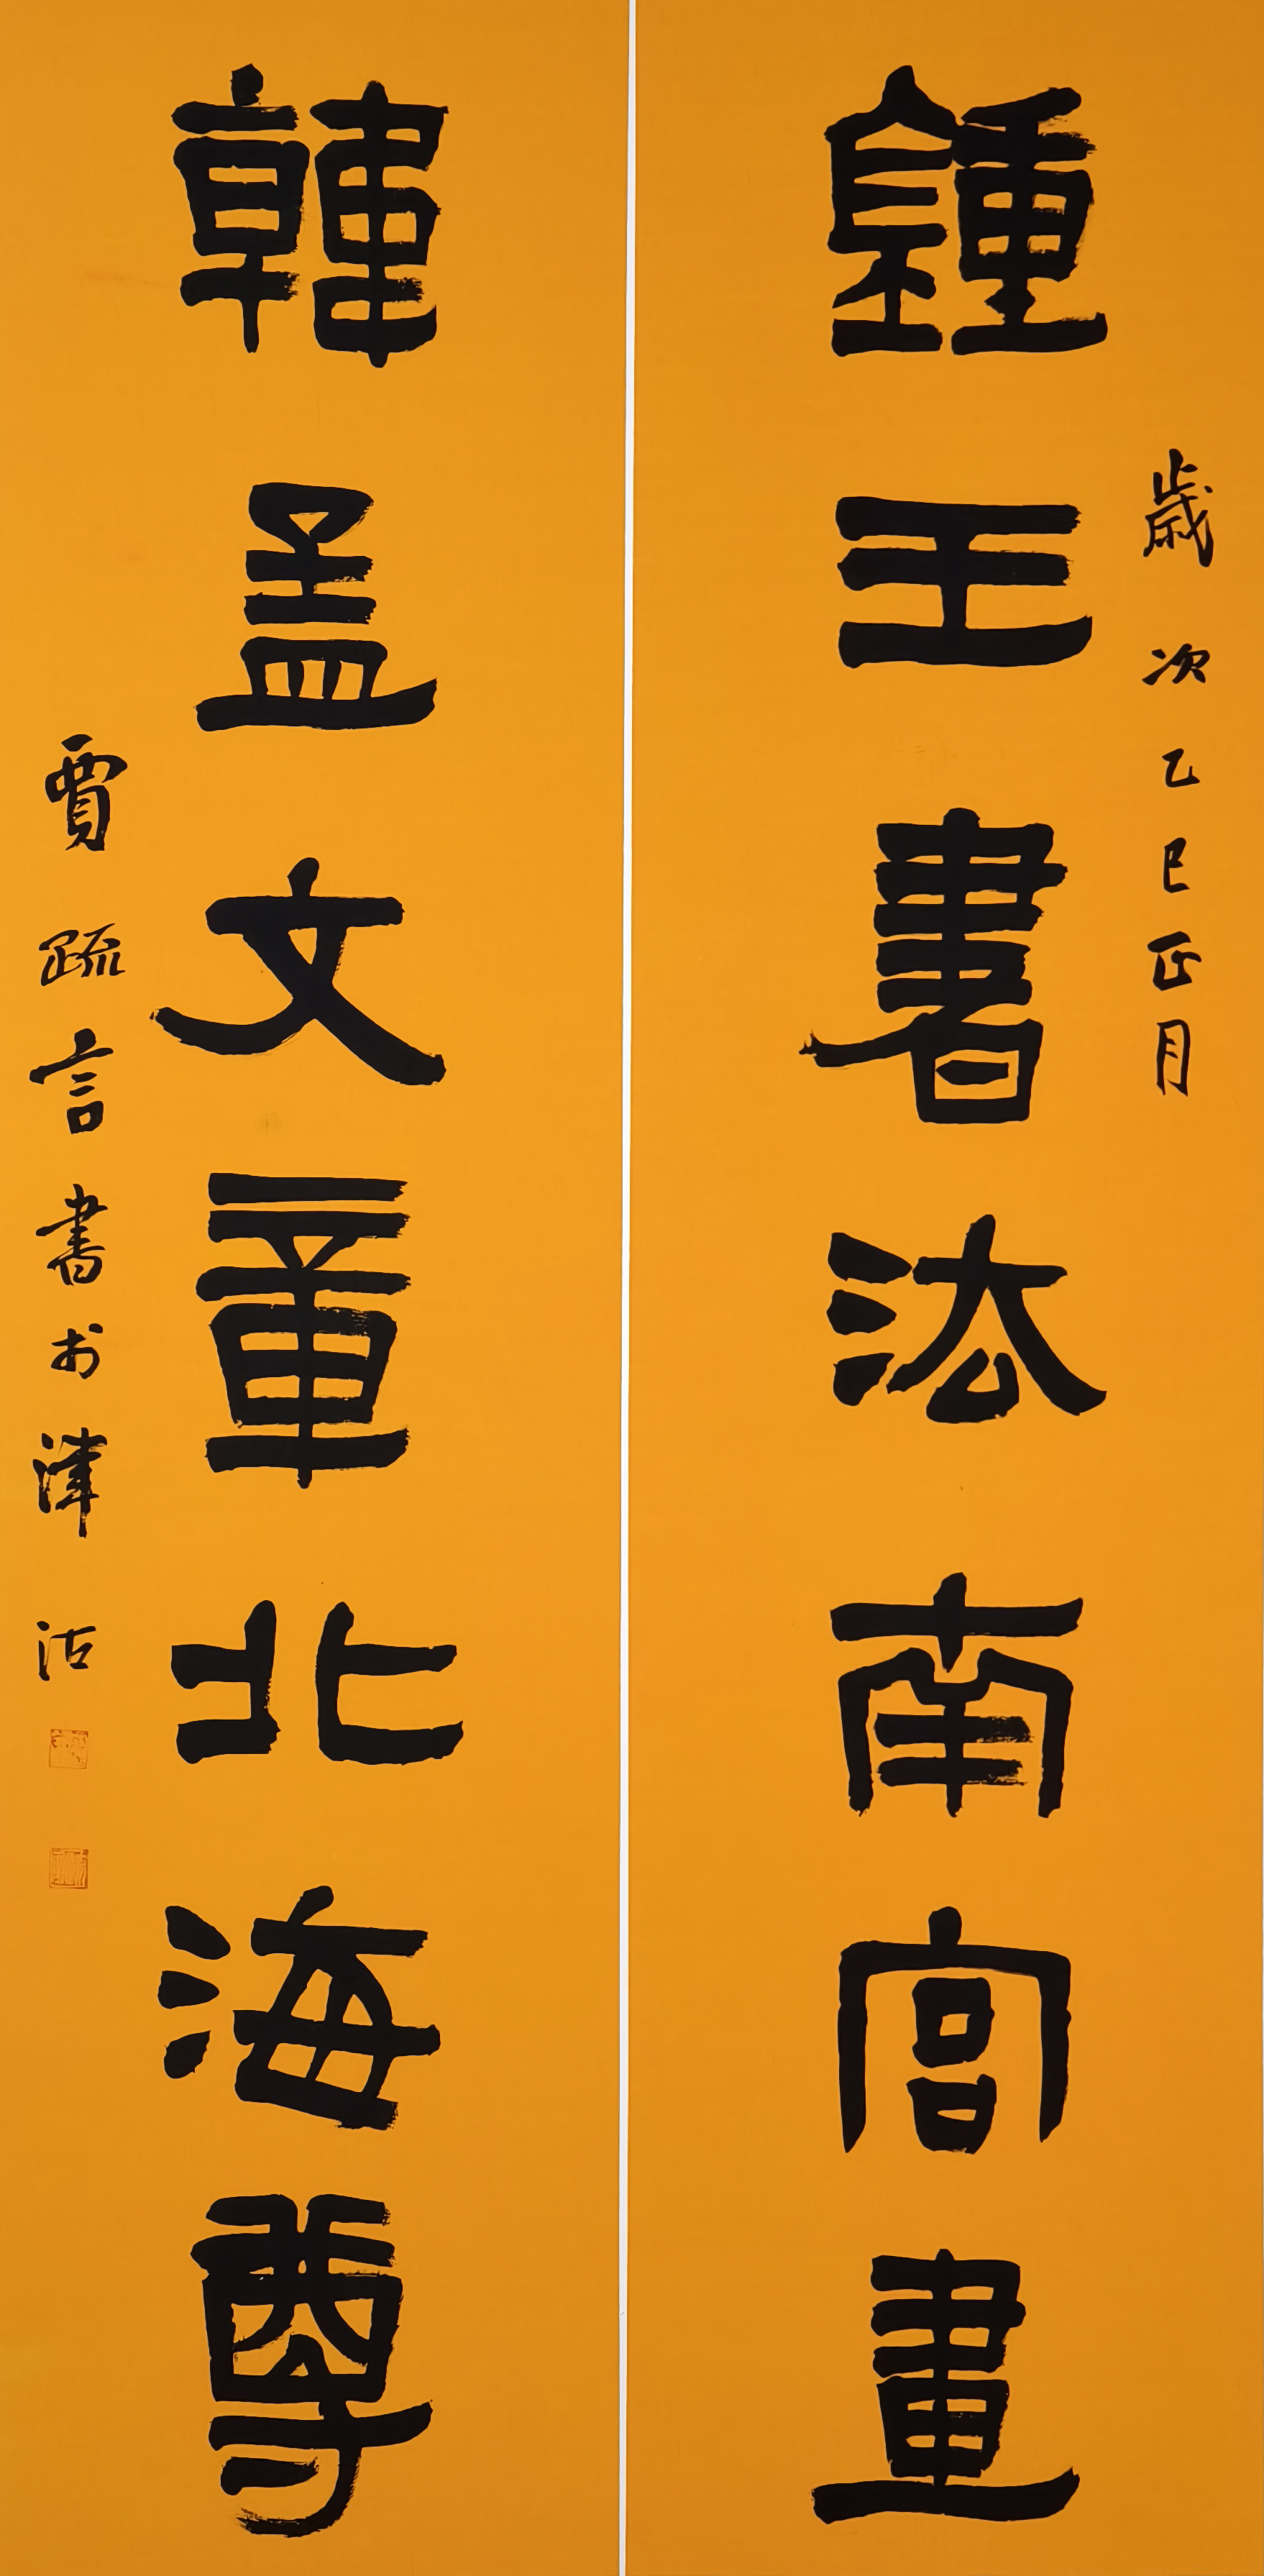 歲次乙巳正月
鍾王書法南宮畫
韓孟文章北海尊
賈疏言書於津沽